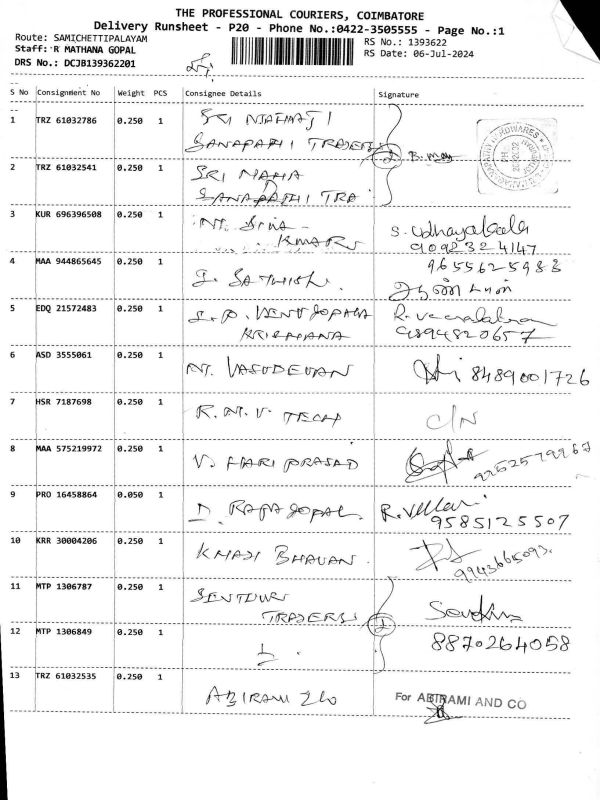 THE PROFESSIONAL COURIERS, COIMBATORE
Delivery Runsheet - P20 - Phone No.:0422-3505555 - Page No.:1
Route: SAMICHETTIPALAYAM
Staff: R MATHANA GOPAL
DRS No.: DCJB139362201
RS No.: 1393622
RS Date: 06-Jul-2024
S No Consignment No Weight PCS Consignee Details Signature
1 TRZ 61032786 0.250 1 SRI
2 TRZ 61032541 0.250 1 SRI MAHA
3 KUR 696396508 0.250 1
9098324147
4 MAA 944865645 0.250 1
9655625983
5 EDQ 21572483 0.250 1
9894820657
6 ASD 3555061 0.250 1 VASUDEVAN 8489001726
7 HSR 7187698 0.250 1 R.M.V. TECH C/N
8 MAA 575219972 0.250 1 V. HARI PRASAD
9 PRO 16458864 0.050 1 D. RAJA GOPAL R. Vellari
9585125507
10 KRR 30004206 0.250 1 KHADI BHAVAN 9943665093
11 MTP 1306787 0.250 1 SENTHUR
TRADERS
12 MTP 1306849 0.250 1 8870264058
13 TRZ 61032535 0.250 1 ABIRAMI For ABIRAMI AND CO